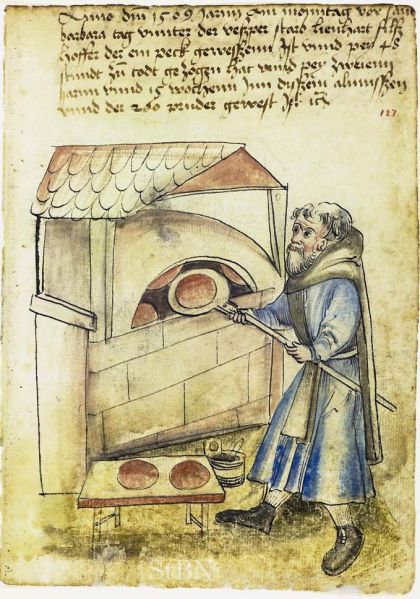 Anno dm 1509 Jarnn am monntag vor san
barbara tag vnnter der vesper starb lienhart filß
hoffer der ein peck gewessenn Ist vnnd per 48
stundt zu todt gezogen hat vnnd pey zweienn
Jarnn vnnd 15 wochenn Inn dissem almussen
vnnd der 260 pruder gewest Ist
127
StBN